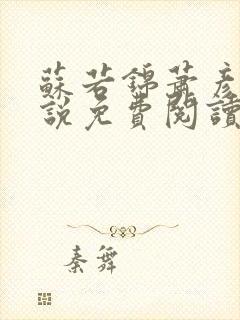 蘇若錦蕭彥
說免費閱讀
秦舞